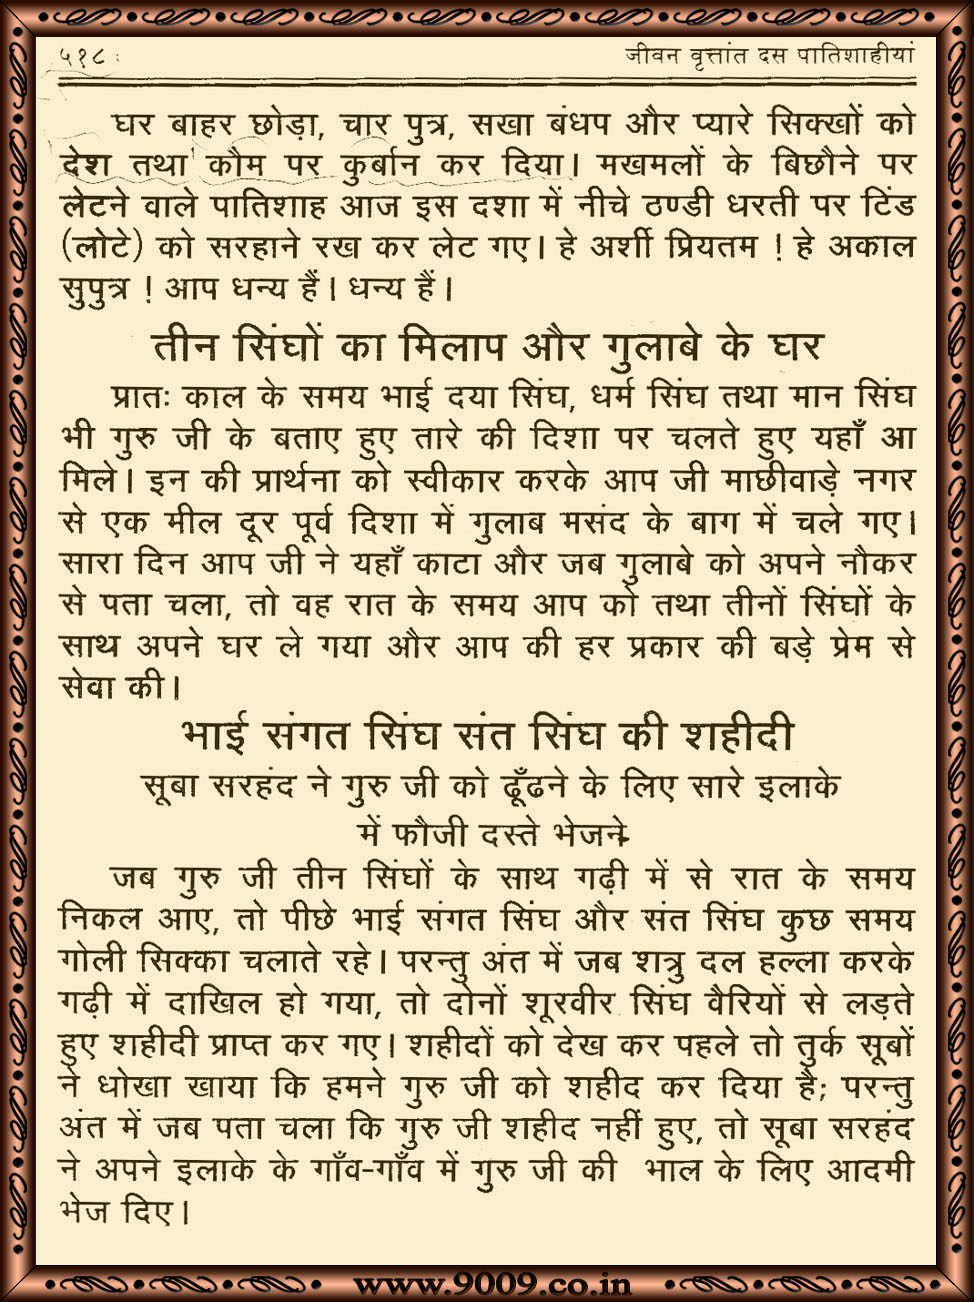 ५१८ :
जीवन वृत्तांत दस पातिशाहीयां
घर बाहर छोड़ा, चार पुत्र, सखा बंधप और प्यारे सिक्खों को
देश तथा कौम पर कुर्बान कर दिया। मखमलों के बिछौने पर
लेटने वाले पातिशाह आज इस दशा में नीचे ठण्डी धरती पर टिंड
(लोटे) को सरहाने रख कर लेट गए। हे अर्शी प्रियतम ! हे अकाल
सुपुत्र ! आप धन्य हैं। धन्य हैं।
तीन सिंघों का मिलाप और गुलाबे के घर
प्रातः काल के समय भाई दया सिंघ, धर्म सिंघ तथा मान सिंघ
भी गुरु जी के बताए हुए तारे की दिशा पर चलते हुए यहाँ आ
मिले। इन की प्रार्थना को स्वीकार करके आप जी माछीवाड़े नगर
से एक मील दूर पूर्व दिशा में गुलाब मसंद के बाग में चले गए।
सारा दिन आप जी ने यहाँ काटा और जब गुलाबे को अपने नौकर
से पता चला, तो वह रात के समय आप को तथा तीनों सिंघों के
साथ अपने घर ले गया और आप की हर प्रकार की बड़े प्रेम से
सेवा की।
भाई संगत सिंघ संत सिंघ की शहीदी
सूबा सरहंद ने गुरु जी को ढूँढने के लिए सारे इलाके
में फौजी दस्ते भेजने
जब गुरु जी तीन सिंघों के साथ गढ़ी में से रात के समय
निकल आए, तो पीछे भाई संगत सिंघ और संत सिंघ कुछ समय
गोली सिक्का चलाते रहे। परन्तु अंत में जब शत्रु दल हल्ला करके
गढ़ी में दाखिल हो गया, तो दोनों शूरवीर सिंघ वैरियों से लड़ते
हुए शहीदी प्राप्त कर गए। शहीदों को देख कर पहले तो तुर्क सूबों
ने धोखा खाया कि हमने गुरु जी को शहीद कर दिया है; परन्तु
अंत में जब पता चला कि गुरु जी शहीद नहीं हुए, तो सूबा सरहंद
ने अपने इलाके के गाँव-गाँव में गुरु जी की भाल के लिए आदमी
भेज दिए।
www.9009.co.in